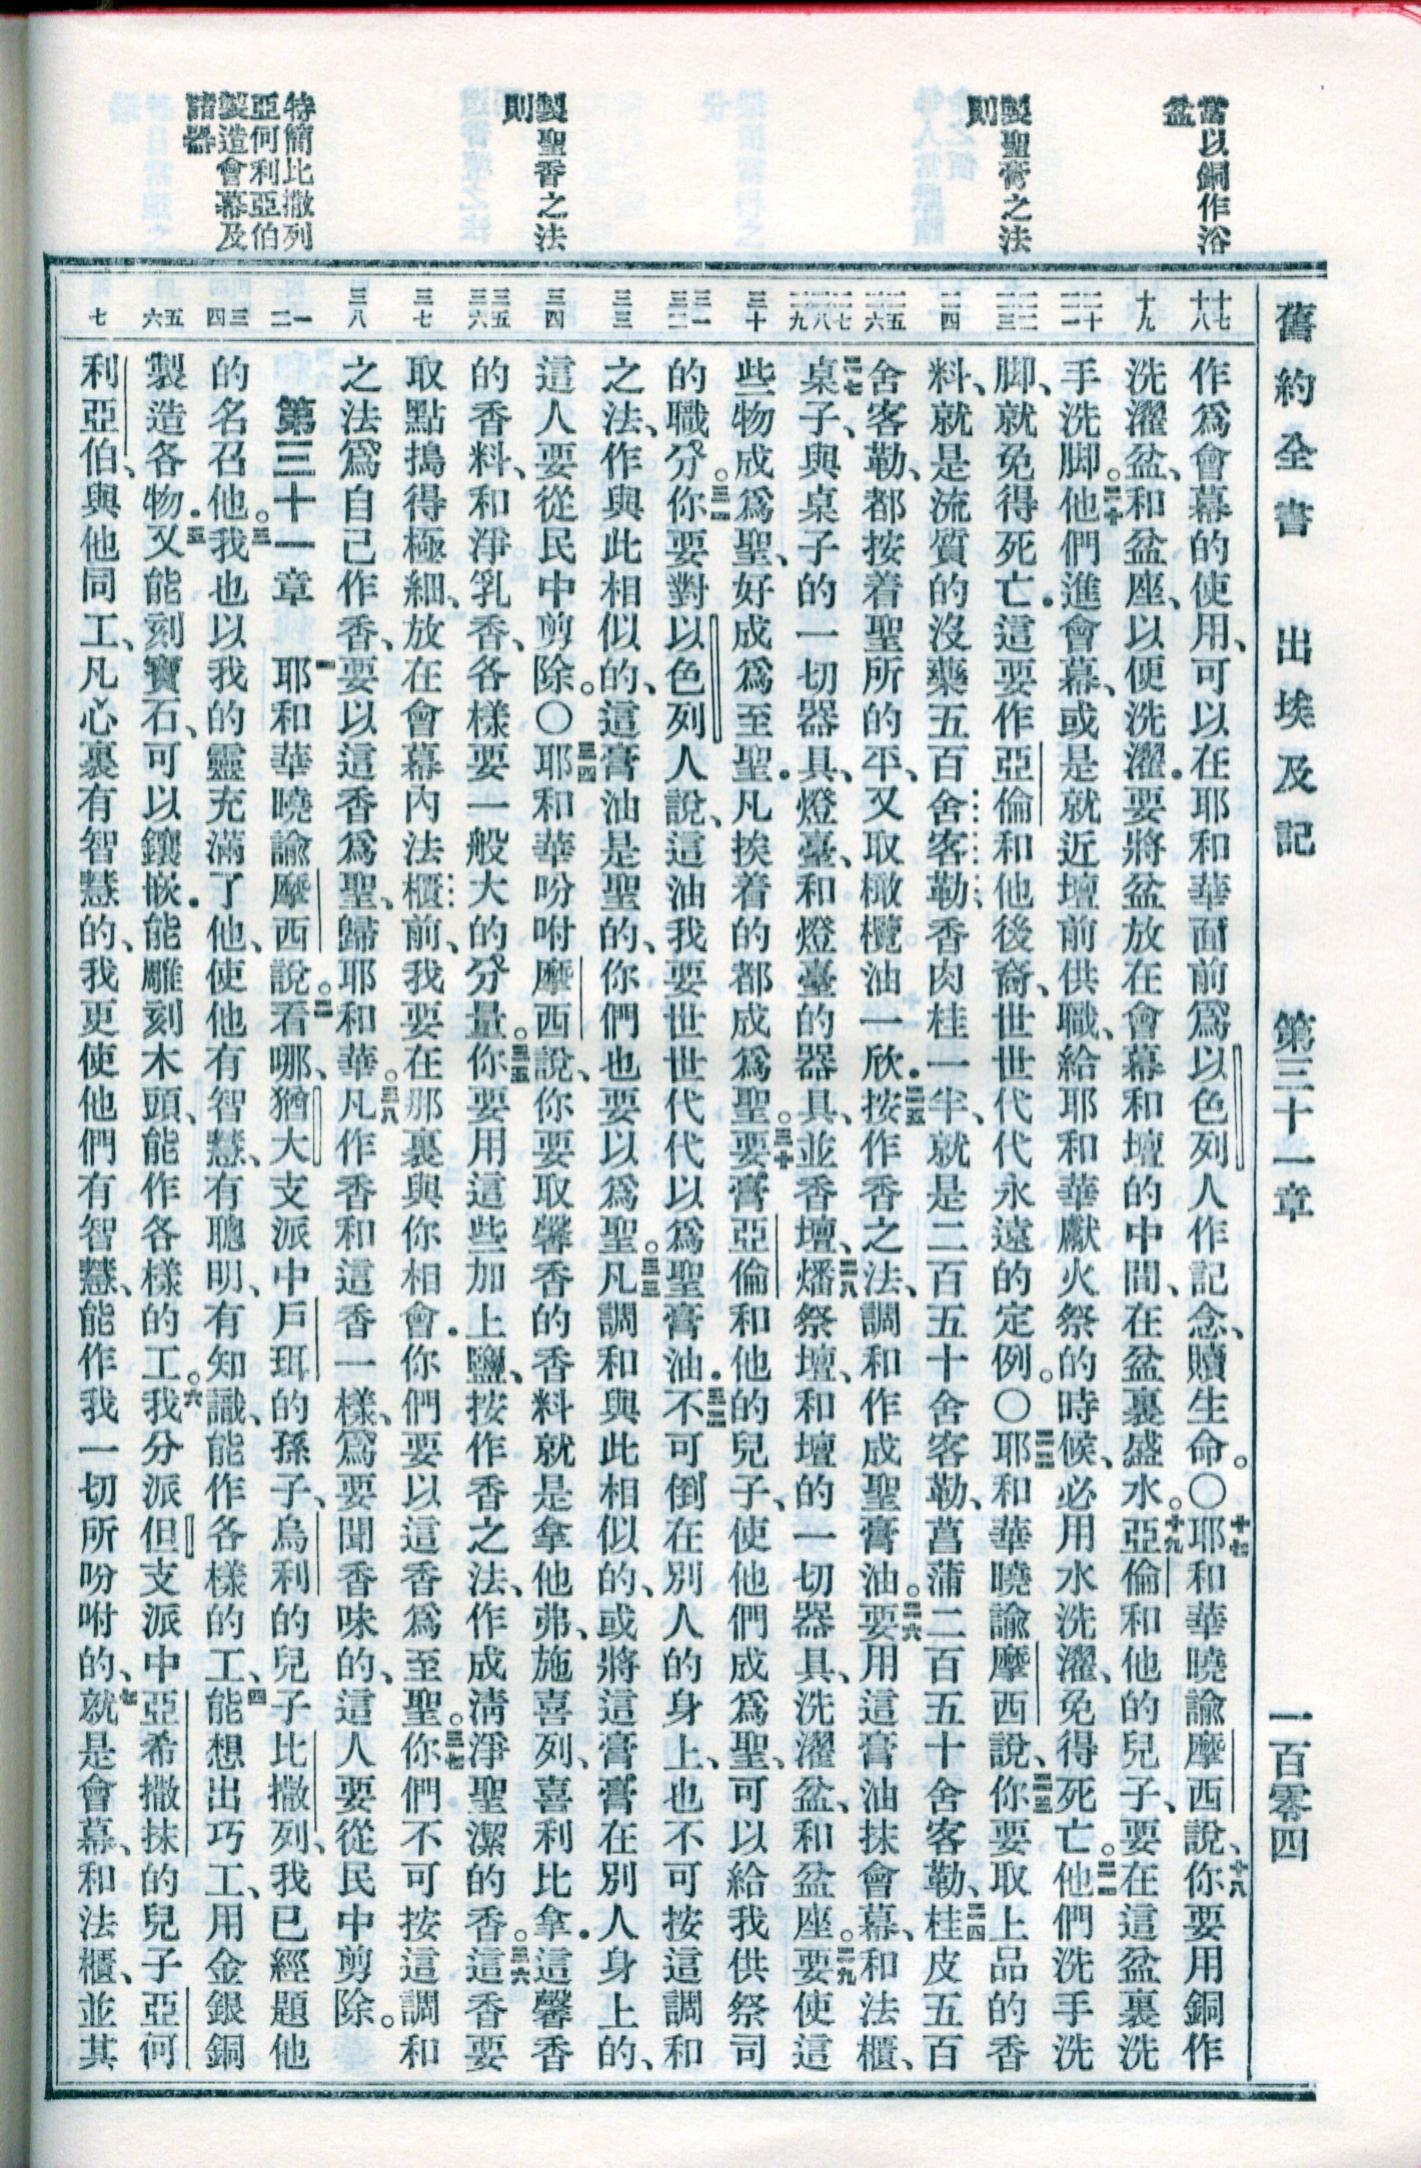 舊約全書 出埃及記 第三十一章 一百零四
當以銅作浴
盆
製聖膏之法
則
製聖香之法
則
特簡比撒列
亞何利亞伯
製造會幕及
諸器
十七
十八
十九
二十
二一
二二
二三
二四
二五
二六
二七
二八
二九
三十
三一
三二
三三
三四
三五
三六
三七
三八
一
二
三
四
五
六
七
作爲會幕的使用、可以在耶和華面前爲以色列人作記念、贖生命。〇十七耶和華曉諭摩西說、十八你要用銅作
洗濯盆、和盆座、以便洗濯．要將盆放在會幕和壇的中間、在盆裏盛水。十九亞倫和他的兒子、要在這盆裏洗
手洗脚。二十他們進會幕、或是就近壇前供職、給耶和華獻火祭的時候、必用水洗濯、免得死亡。二一他們洗手洗
脚、就免得死亡．這要作亞倫和他後裔、世世代代永遠的定例。〇二二耶和華曉諭摩西說、二三你要取上品的香
料、就是流質的沒藥五百舍客勒、香肉桂一半、就是二百五十舍客勒、菖蒲二百五十舍客勒、二四桂皮五百
舍客勒、都按着聖所的平、又取橄欖油一欣．二五按作香之法、調和作成聖膏油。二六要用這膏油抹會幕、和法櫃、
二七桌子、與桌子的一切器具、燈臺、和燈臺的器具、並香壇、二八燔祭壇、和壇的一切器具、洗濯盆、和盆座。二九要使這
些物成爲聖、好成爲至聖．凡挨着的都成爲聖。三十要膏亞倫和他的兒子、使他們成爲聖、可以給我供祭司
的職分。三一你要對以色列人說、這油我要世世代代以爲聖膏油．三二不可倒在別人的身上、也不可按這調和
之法、作與此相似的、這膏油是聖的、你們也要以爲聖。三三凡調和與此相似的、或將這膏膏在別人身上的、
這人要從民中剪除。〇三四耶和華吩咐摩西說、你要取馨香的香料、就是拿他弗、施喜列、喜利比拿．這馨香
的香料、和淨乳香、各樣要一般大的分量。三五你要用這些加上鹽、按作香之法、作成淸淨聖潔的香。三六這香要
取點搗得極細、放在會幕內法櫃前、我要在那裏與你相會．你們要以這香爲至聖。三七你們不可按這調和
之法爲自己作香、要以這香爲聖、歸耶和華。三八凡作香和這香一樣、爲要聞香味的、這人要從民中剪除。
第三十一章 一耶和華曉諭摩西說。二看哪、猶大支派中、戶珥的孫子、烏利的兒子比撒列、我已經題他
的名召他。三我也以我的靈充滿了他、使他有智慧、有聰明、有知識、能作各樣的工、四能想出巧工、用金銀銅
製造各物．五又能刻寶石、可以鑲嵌．能雕刻木頭、能作各樣的工。六我分派但支派中、亞希撒抹的兒子亞何
利亞伯、與他同工、凡心裏有智慧的、我更使他們有智慧、能作我一切所吩咐的、七就是會幕、和法櫃、並其